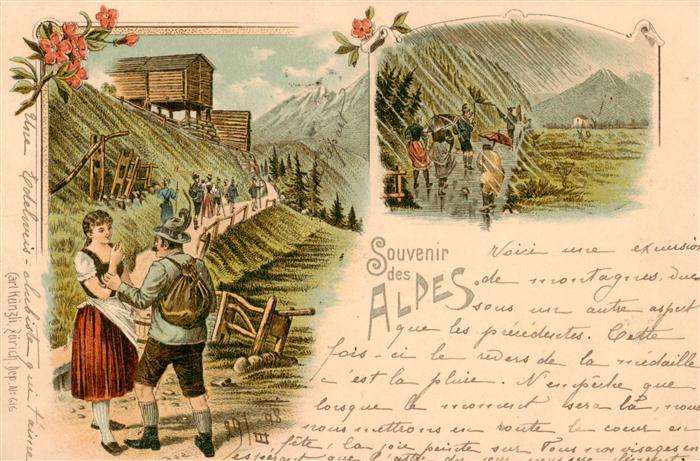 Souvenir
des
ALPES
Voici une excursion
de montagnes, vue
sous un autre aspect
que les précédentes. Cette
fois-ci le revers de la médaille
c'est la pluie. N'empêche que
lorsque le moment sera là, nous
nous mettrons en route le cœur en
fête, la joie peinte sur tous nos visages en
espérant que
Une
Carl Künzli, Zürich Dep. No. 616